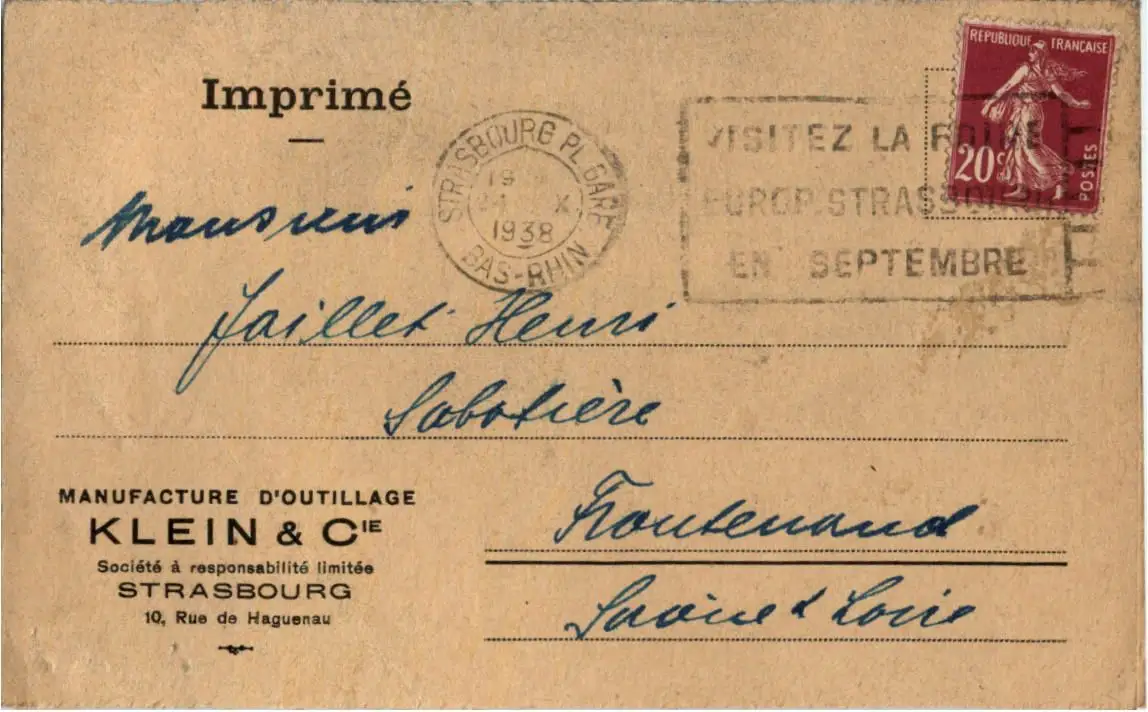 Imprimé
REPUBLIQUE FRANÇAISE
20c
POSTES
STRASBOURG PL. GARE
19
X
1938
BAS-RHIN
VISITEZ LA FOIRE
EUROP. STRASBOURG
EN SEPTEMBRE
Monsieur
Jaillet Henri
Sabotière
Frontenaud
Saône & Loire
MANUFACTURE D'OUTILLAGE
KLEIN & CIE
Société à responsabilité limitée
STRASBOURG
10, Rue de Haguenau